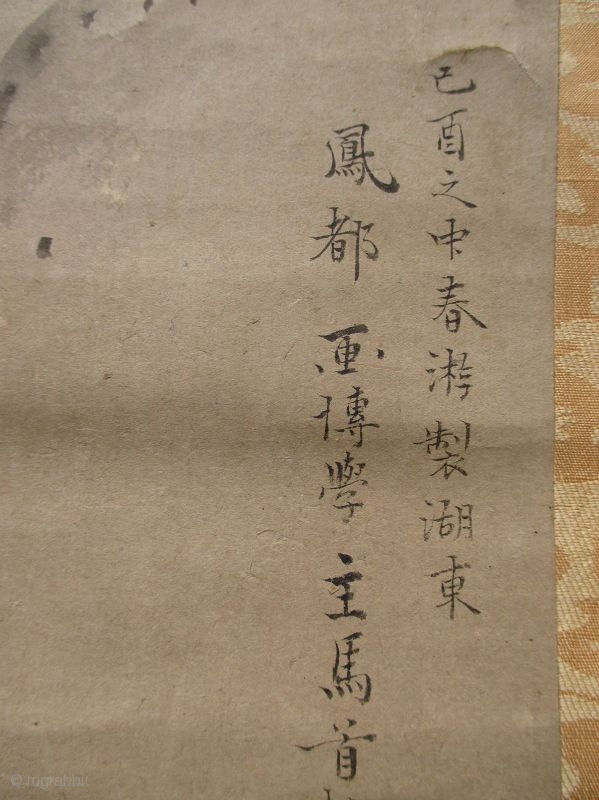 己酉之中春游製湖東
鳳都画傳學主馬首
© rugrabbit